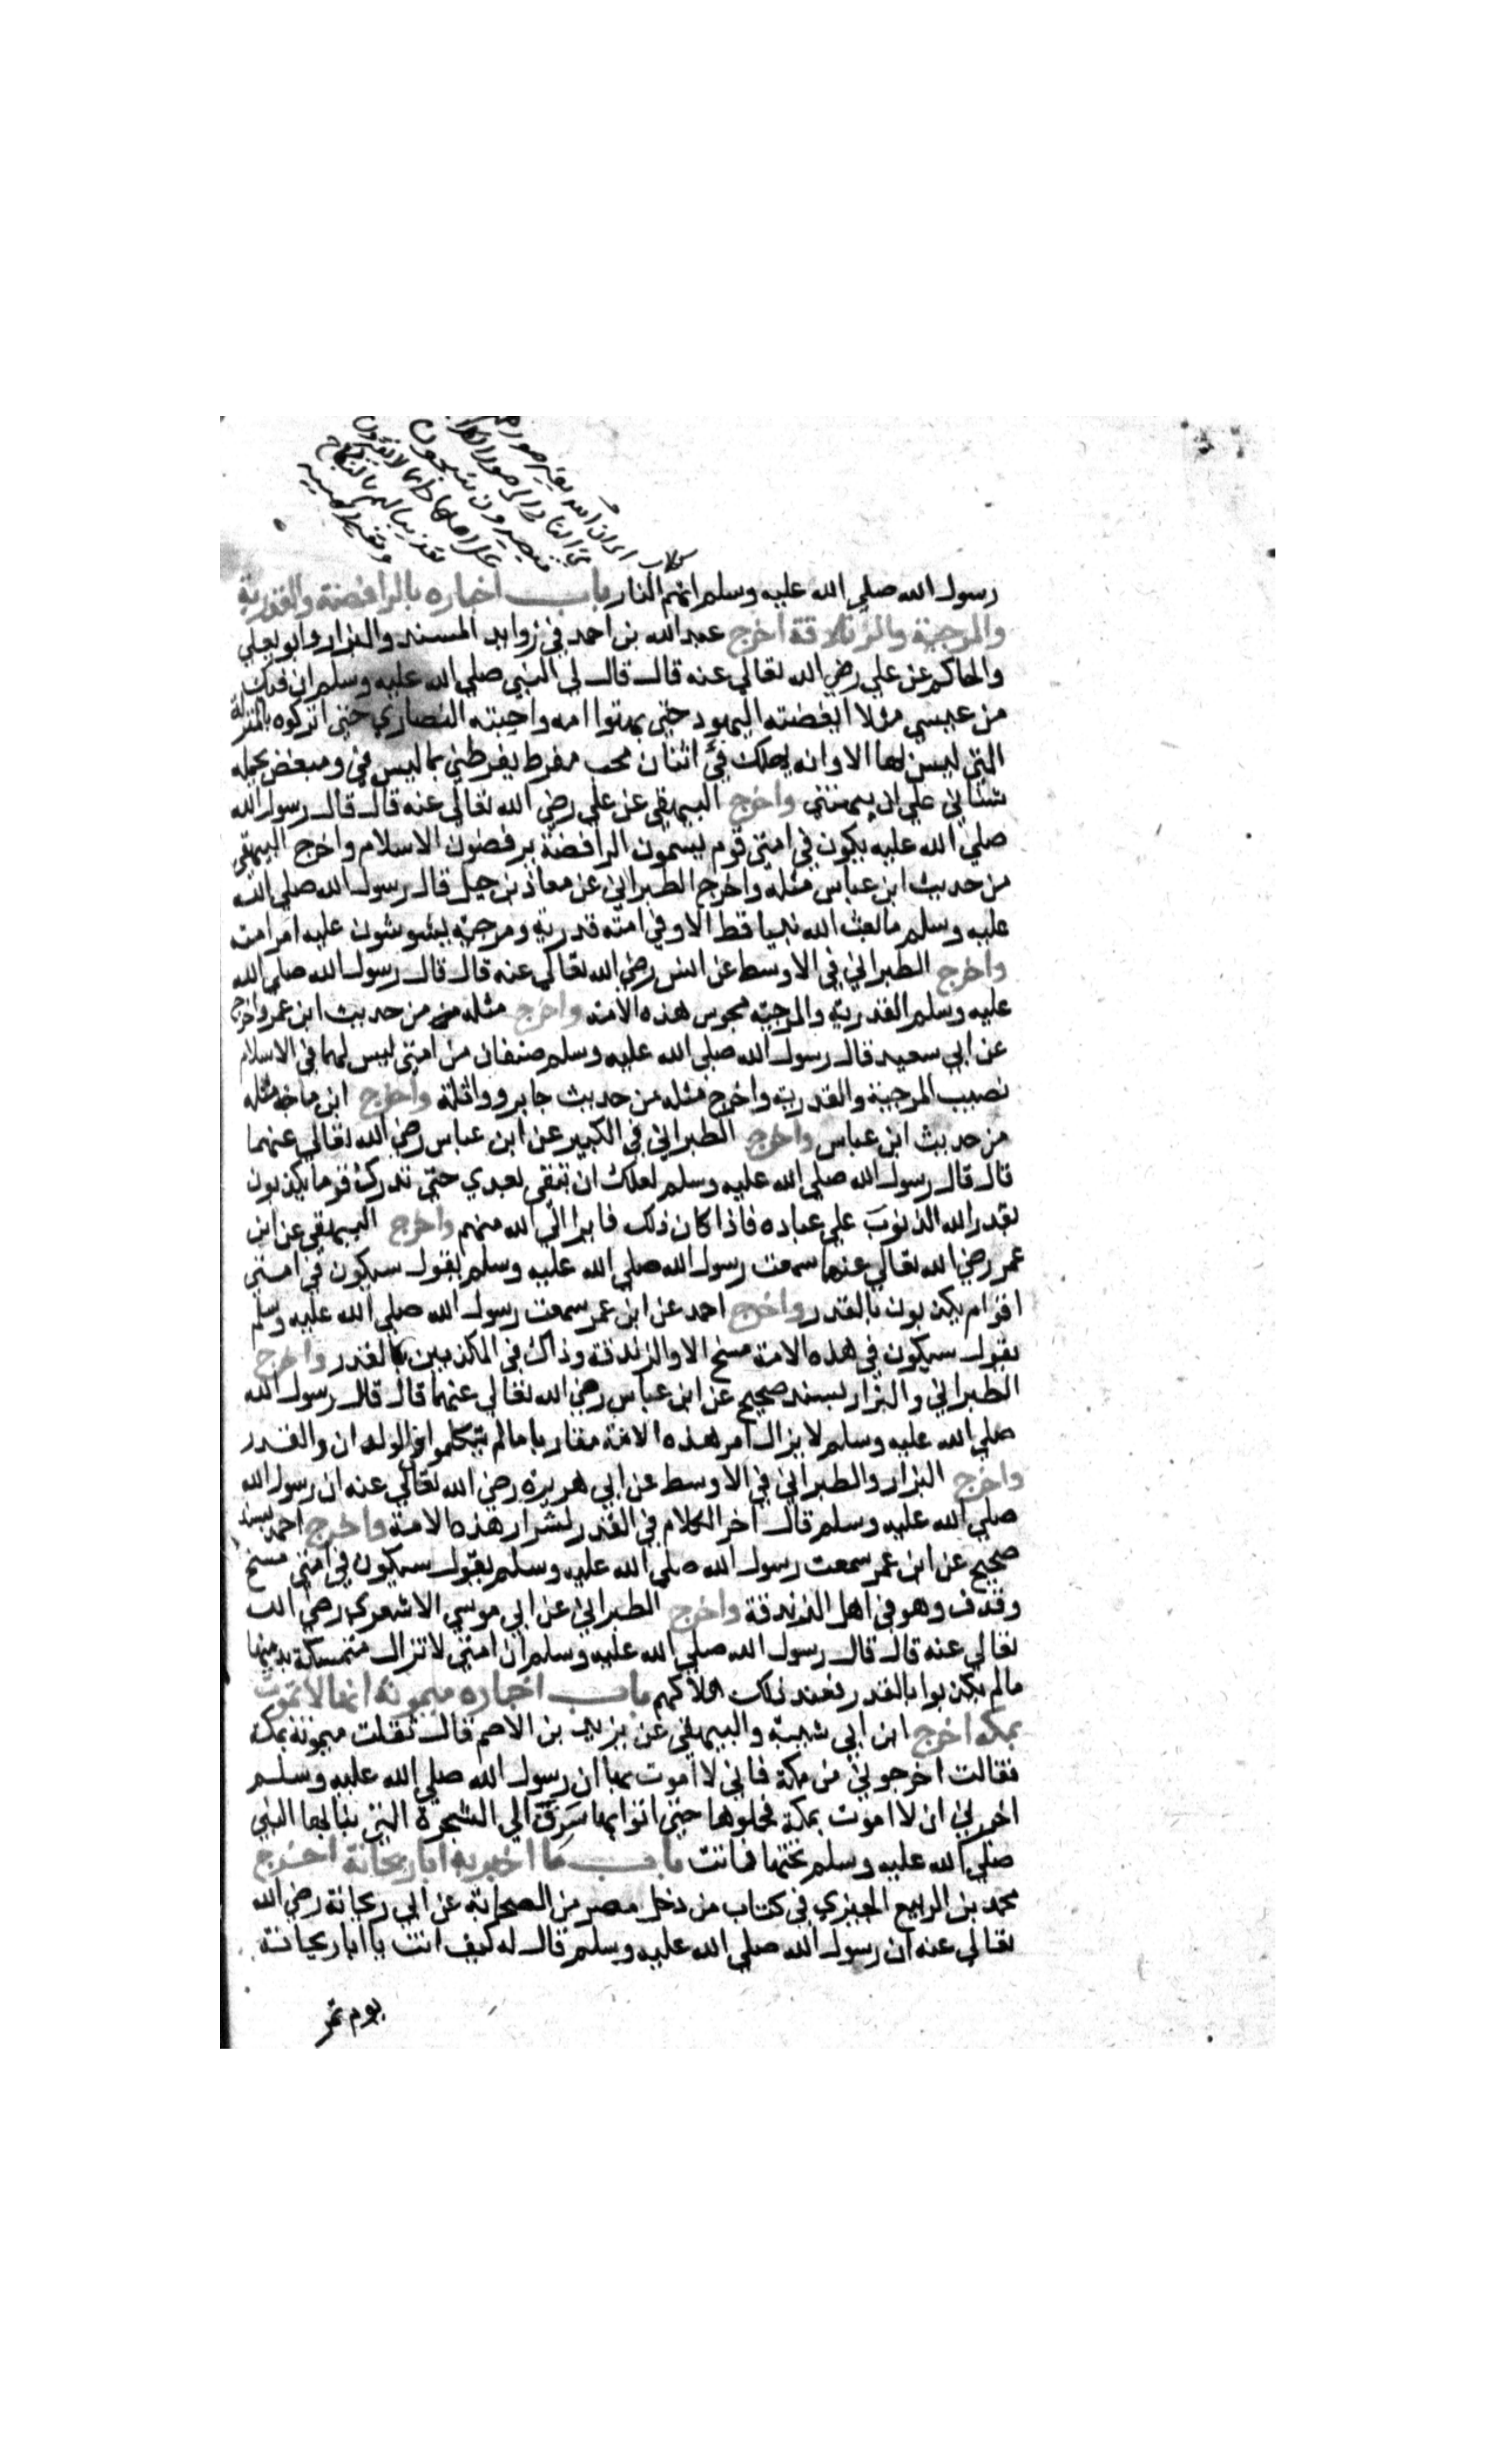 كلاب
رسول الله صلي الله عليه وسلم انهم النار باب اخباره بالرافضة والقدرية
والمرجية والزنادقة اخرج عبد الله بن احمد في زوايد المسند والبزار وابو يعلي
والحاكم عن علي رضي الله تعالي عنه قال قال لي النبي صلي الله عليه وسلم ان فيك
من عيسي مثلا ابغضته اليهود حتي بهتوا امه واحبته النصاري حتي انزلوه بالمنزلة
التي ليس لها الا وانه يهلك في اثنان محب مفرط يفرطني بما ليس في ومبغض يحمله
شناني علي ان يبهتني واخرج البيهقي عن علي رضي الله تعالي عنه قال قال رسول الله
صلي الله عليه يكون في امتي قوم يسمون الرافضة يرفضون الاسلام واخرج البيهقي
من حديث ابن عباس مثله واخرج الطبراني عن معاذ بن جبل قال رسول الله صلي الله
عليه وسلم ما بعث الله نبيا قط الا وفي امته قدرية ومرجية يشوشون عليه امر امته
واخرج الطبراني في الاوسط عن انس رضي الله تعالي عنه قال قال رسول الله صلي الله
عليه وسلم القدرية والمرجية مجوس هذه الامة واخرج مثله من من حديث ابن عمر واخرج
عن ابي سعيد قال رسول الله صلي الله عليه وسلم صنفان من امتي ليس لهما في الاسلام
نصيب المرجية والقدرية واخرج مثله من حديث جابر وواثلة واخرج ابن ماجه مثله
من حديث ابن عباس واخرج الطبراني في الكبير عن ابن عباس رضي الله تعالي عنهما
قال قال رسول الله صلي الله عليه وسلم لعلك ان تبقي بعدي حتي تدرك قوما يكذبون
بقدر الله الذنوب علي عباده فاذا كان ذلك فابرا الي الله منهم واخرج البيهقي عن ابن
عمر رضي الله تعالي عنهما سمعت رسول الله صلي الله عليه وسلم يقول سيكون في امتي
اقوام يكذبون بالقدر واخرج احمد عن ابن عمر سمعت رسول الله صلي الله عليه وسلم
يقول سيكون في هذه الامة مسخ الا والزندقة وذاك في المكذبين بالقدر واخرج
الطبراني والبزار بسند صحيح عن ابن عباس رضي الله تعالي عنهما قال قال رسول الله
صلي الله عليه وسلم لا يزال امر هذه الامة مقاربا مالم يتكلموا في الولدان والقدر
واخرج البزار والطبراني في الاوسط عن ابي هريرة رضي الله تعالي عنه ان رسول الله
صلي الله عليه وسلم قال اخر الكلام في القدر لشرار هذه الامة واخرج احمد بسند
صحيح عن ابن عمر سمعت رسول الله صلي الله عليه وسلم يقول سيكون في امتي مسخ
وقذف وهو في اهل الزندقة واخرج الطبراني عن ابي موسي الاشعري رضي الله
تعالي عنه قال قال رسول الله صلي الله عليه وسلم ان امتي لا تزال متمسكة بدينها
مالم يكذبوا بالقدر فعند ذلك هلاكهم باب اخباره ميمونة انها لا تموت
بمكه اخرج ابن ابي شيبة والبيهقي عن يزيد بن الاصم قال ثقلت ميمونة بمكة
فقالت اخرجوني من مكة فاني لا اموت بها ان رسول الله صلي الله عليه وسلم
اخبرني ان لا اموت بمكة فحملوها حتي اتوا بها سرف الي الشجرة التي بنا بها النبي
صلي الله عليه وسلم تحتها فماتت باب ما اخبر به ابا ريحانة اخرج
محمد بن الربيع الجيزي في كتاب من دخل مصر من الصحابة عن ابي ريحانة رضي الله
تعالي عنه ان رسول الله صلي الله عليه وسلم قال له كيف انت يا ابا ريحانة
يوم تمر